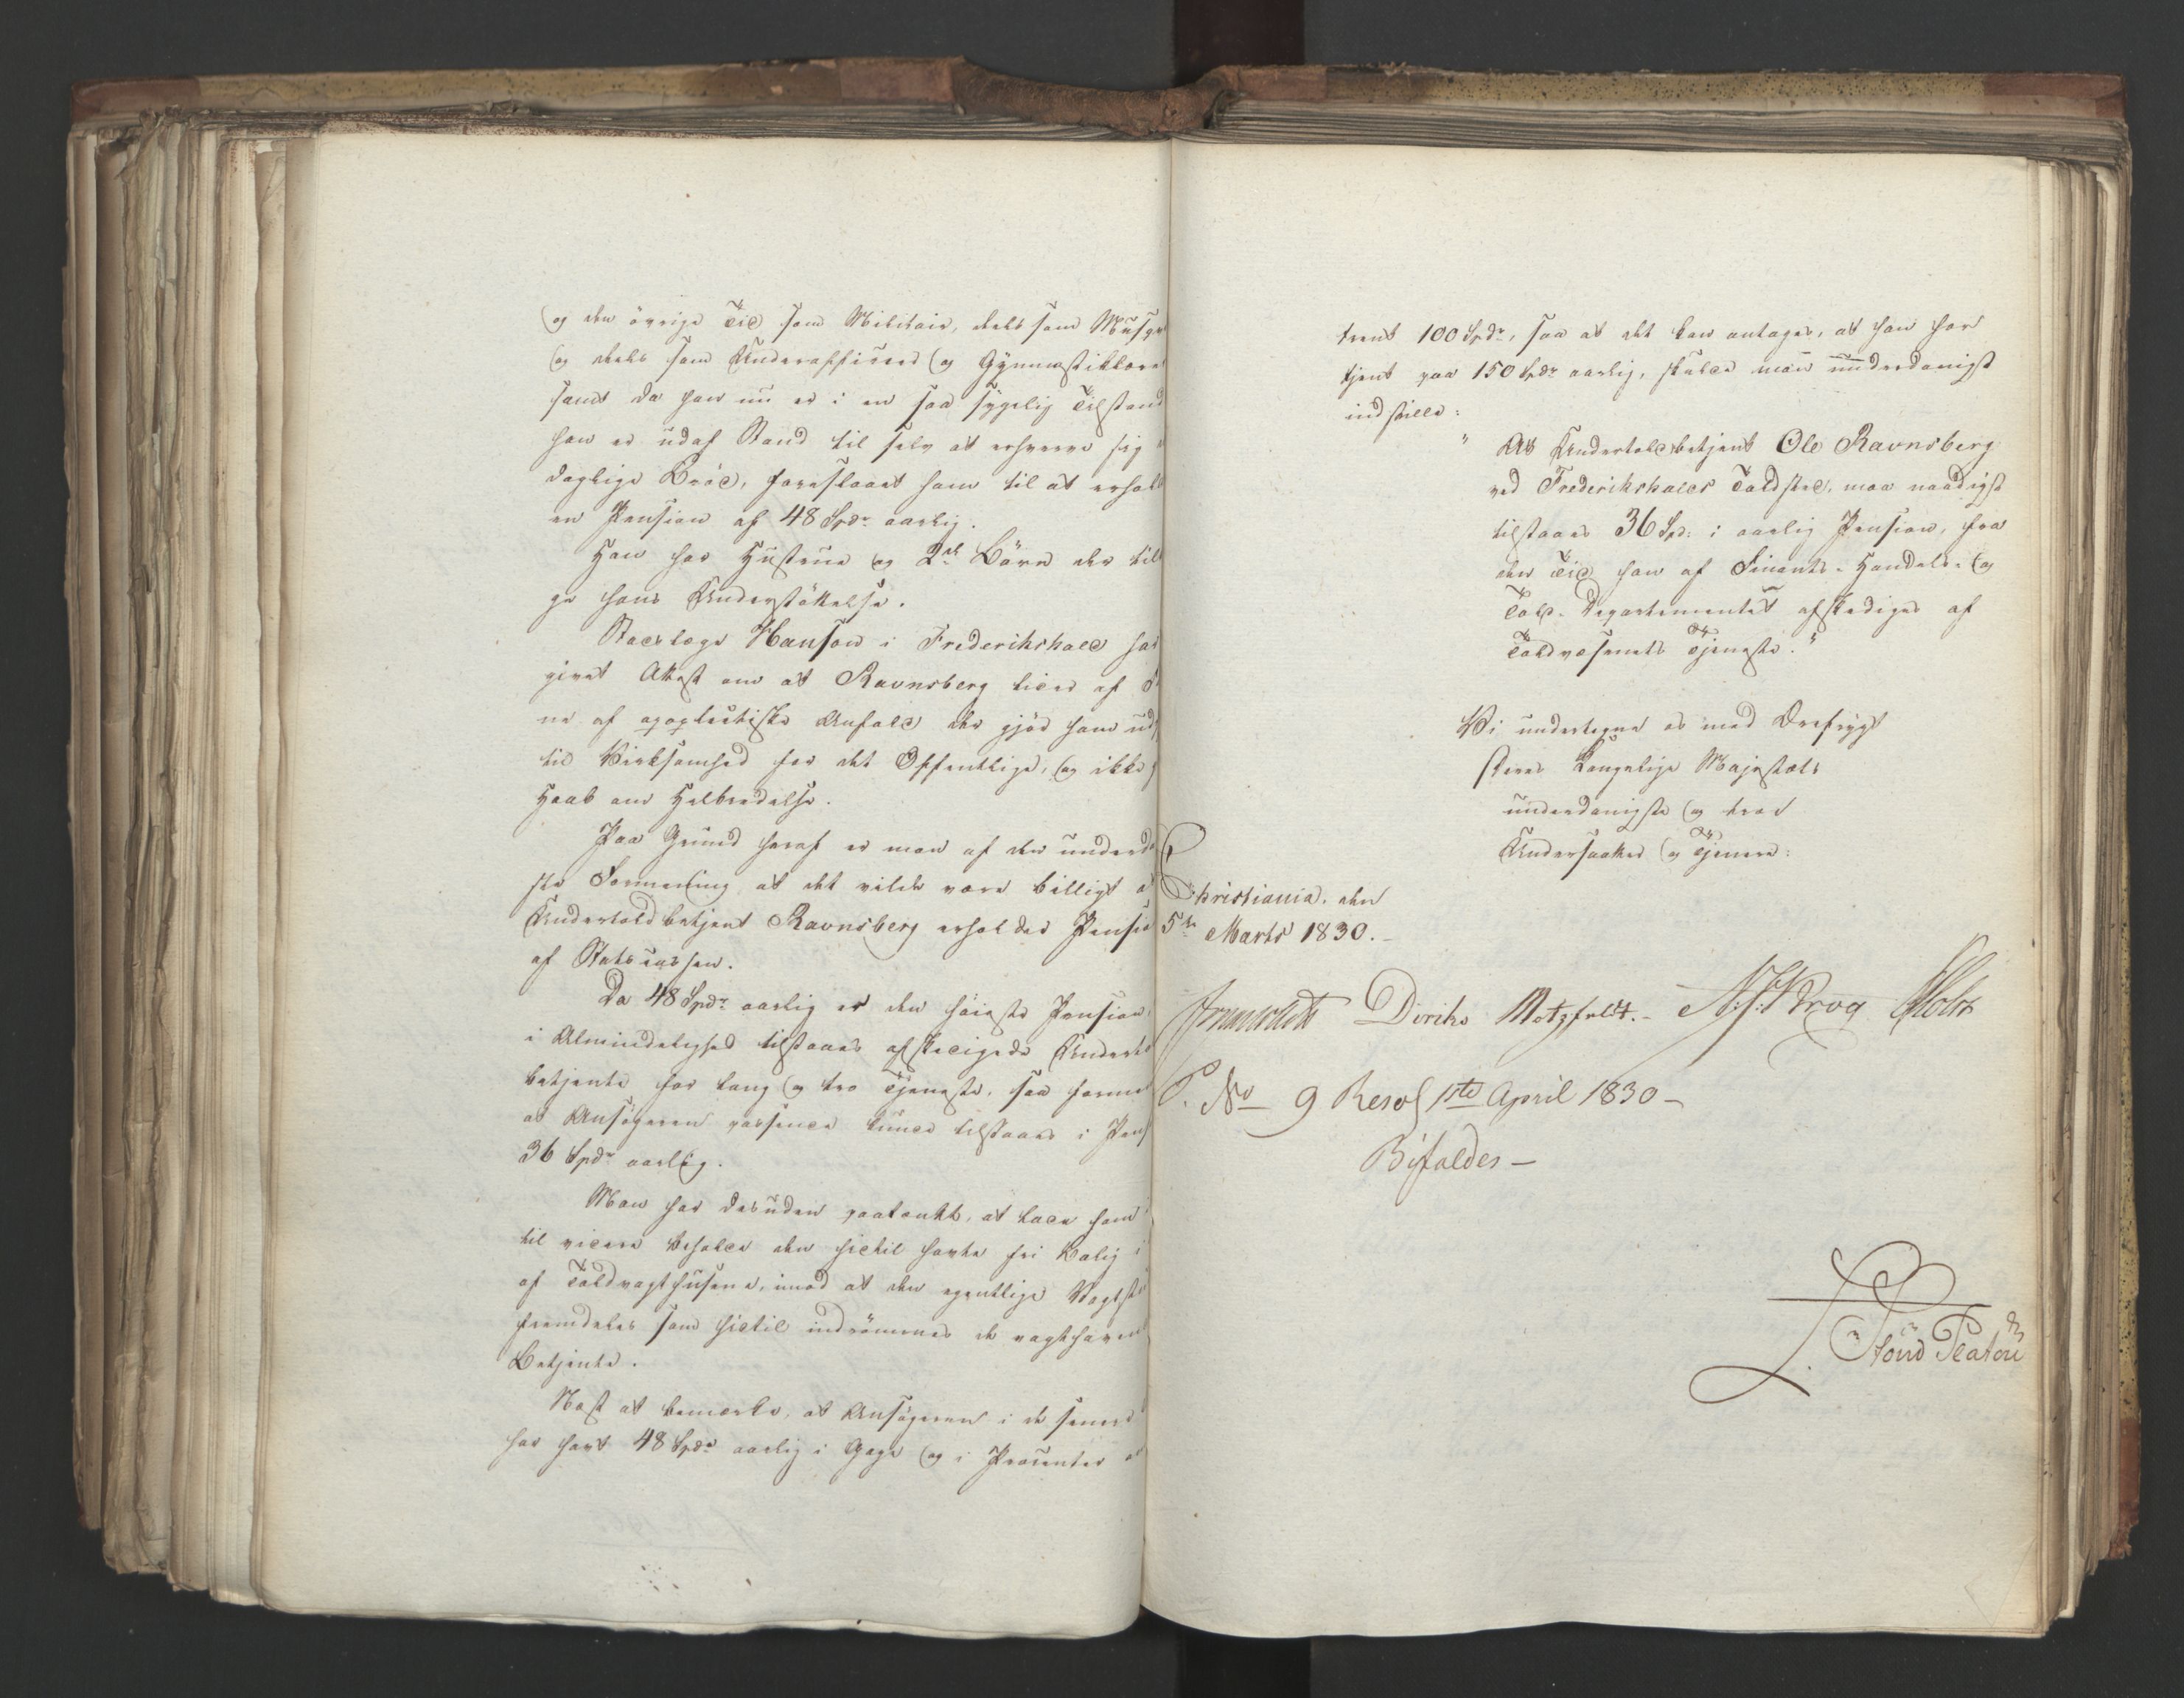 og den övrige Tid som Militair, deels som Musque
og deels som Underofficeer og Gymnastiklære
samt da han nu er i en saa sygelig Tilstand
han er udaf Stand til selv at erhverve sig
daglige Bröd, foreslaaet ham til at erhol
en Pension af 48 Spdr aarlig.
Han har Hustrue og 2de Börn der til
ge hans Understöttelse.
Stadslæge Hanson i Frederikshald har
givet Attest om at Ravnsberg lider af
ne af apoplectiske Anfald der gjör ham ud
til Virksomhed for det Offentlige, og ikke
Haab om Helbredelse.
Paa Grund heraf er man af den underda
ste Formening at det vilde være billigt a
Undertoldbetjent Ravnsberg erholder Pensio
af Statscassen.
Da 48 Spdr aarlig er den höieste Pension
i Almindelighed tilstaaes afskedigede Underto
betjente for lang og tro Tjeneste, saa forme
at Ansögeren passende kunde tilstaaes i Pens
36 Spdr aarlig.
Man har desuden paatænkt, at lade ham
til videre beholde den hidtil havte fri Bolig i
af Toldvagthusene, imod at den egentlige Vagtst
fremdeles som hidtil indrömmes de vagthaven
Betjente.
Næst at bemærke, at Ansögeren i de senere
har havt 48 Spdr aarlig i Gage og i Procenter
trent 100 Spdr, saa at det kan antages, at han har
tjent paa 150 Spdr aarlig, skulde man underdanigst
indstille:
" At Undertoldbetjent Ole Ravnsberg
ved Frederikshalds Toldsted, maa naadigst
tilstaaes 36 Spd: i aarlig Pension, fra
den Tid han af Finants- Handels- og
Told-Departementet afskediges af
Toldvæsenets Tjeneste."
Vi undertegne os med Ærefrygt
Deres Kongelige Majestæts
underdanigste og troe
Undersaatter og Tjenere:
Christiania, den
5te Marts 1830.-
Diriks Motzfeldt.- Krog Holst
P. No 9 Resol 1ste April 1830-
Bifaldes-